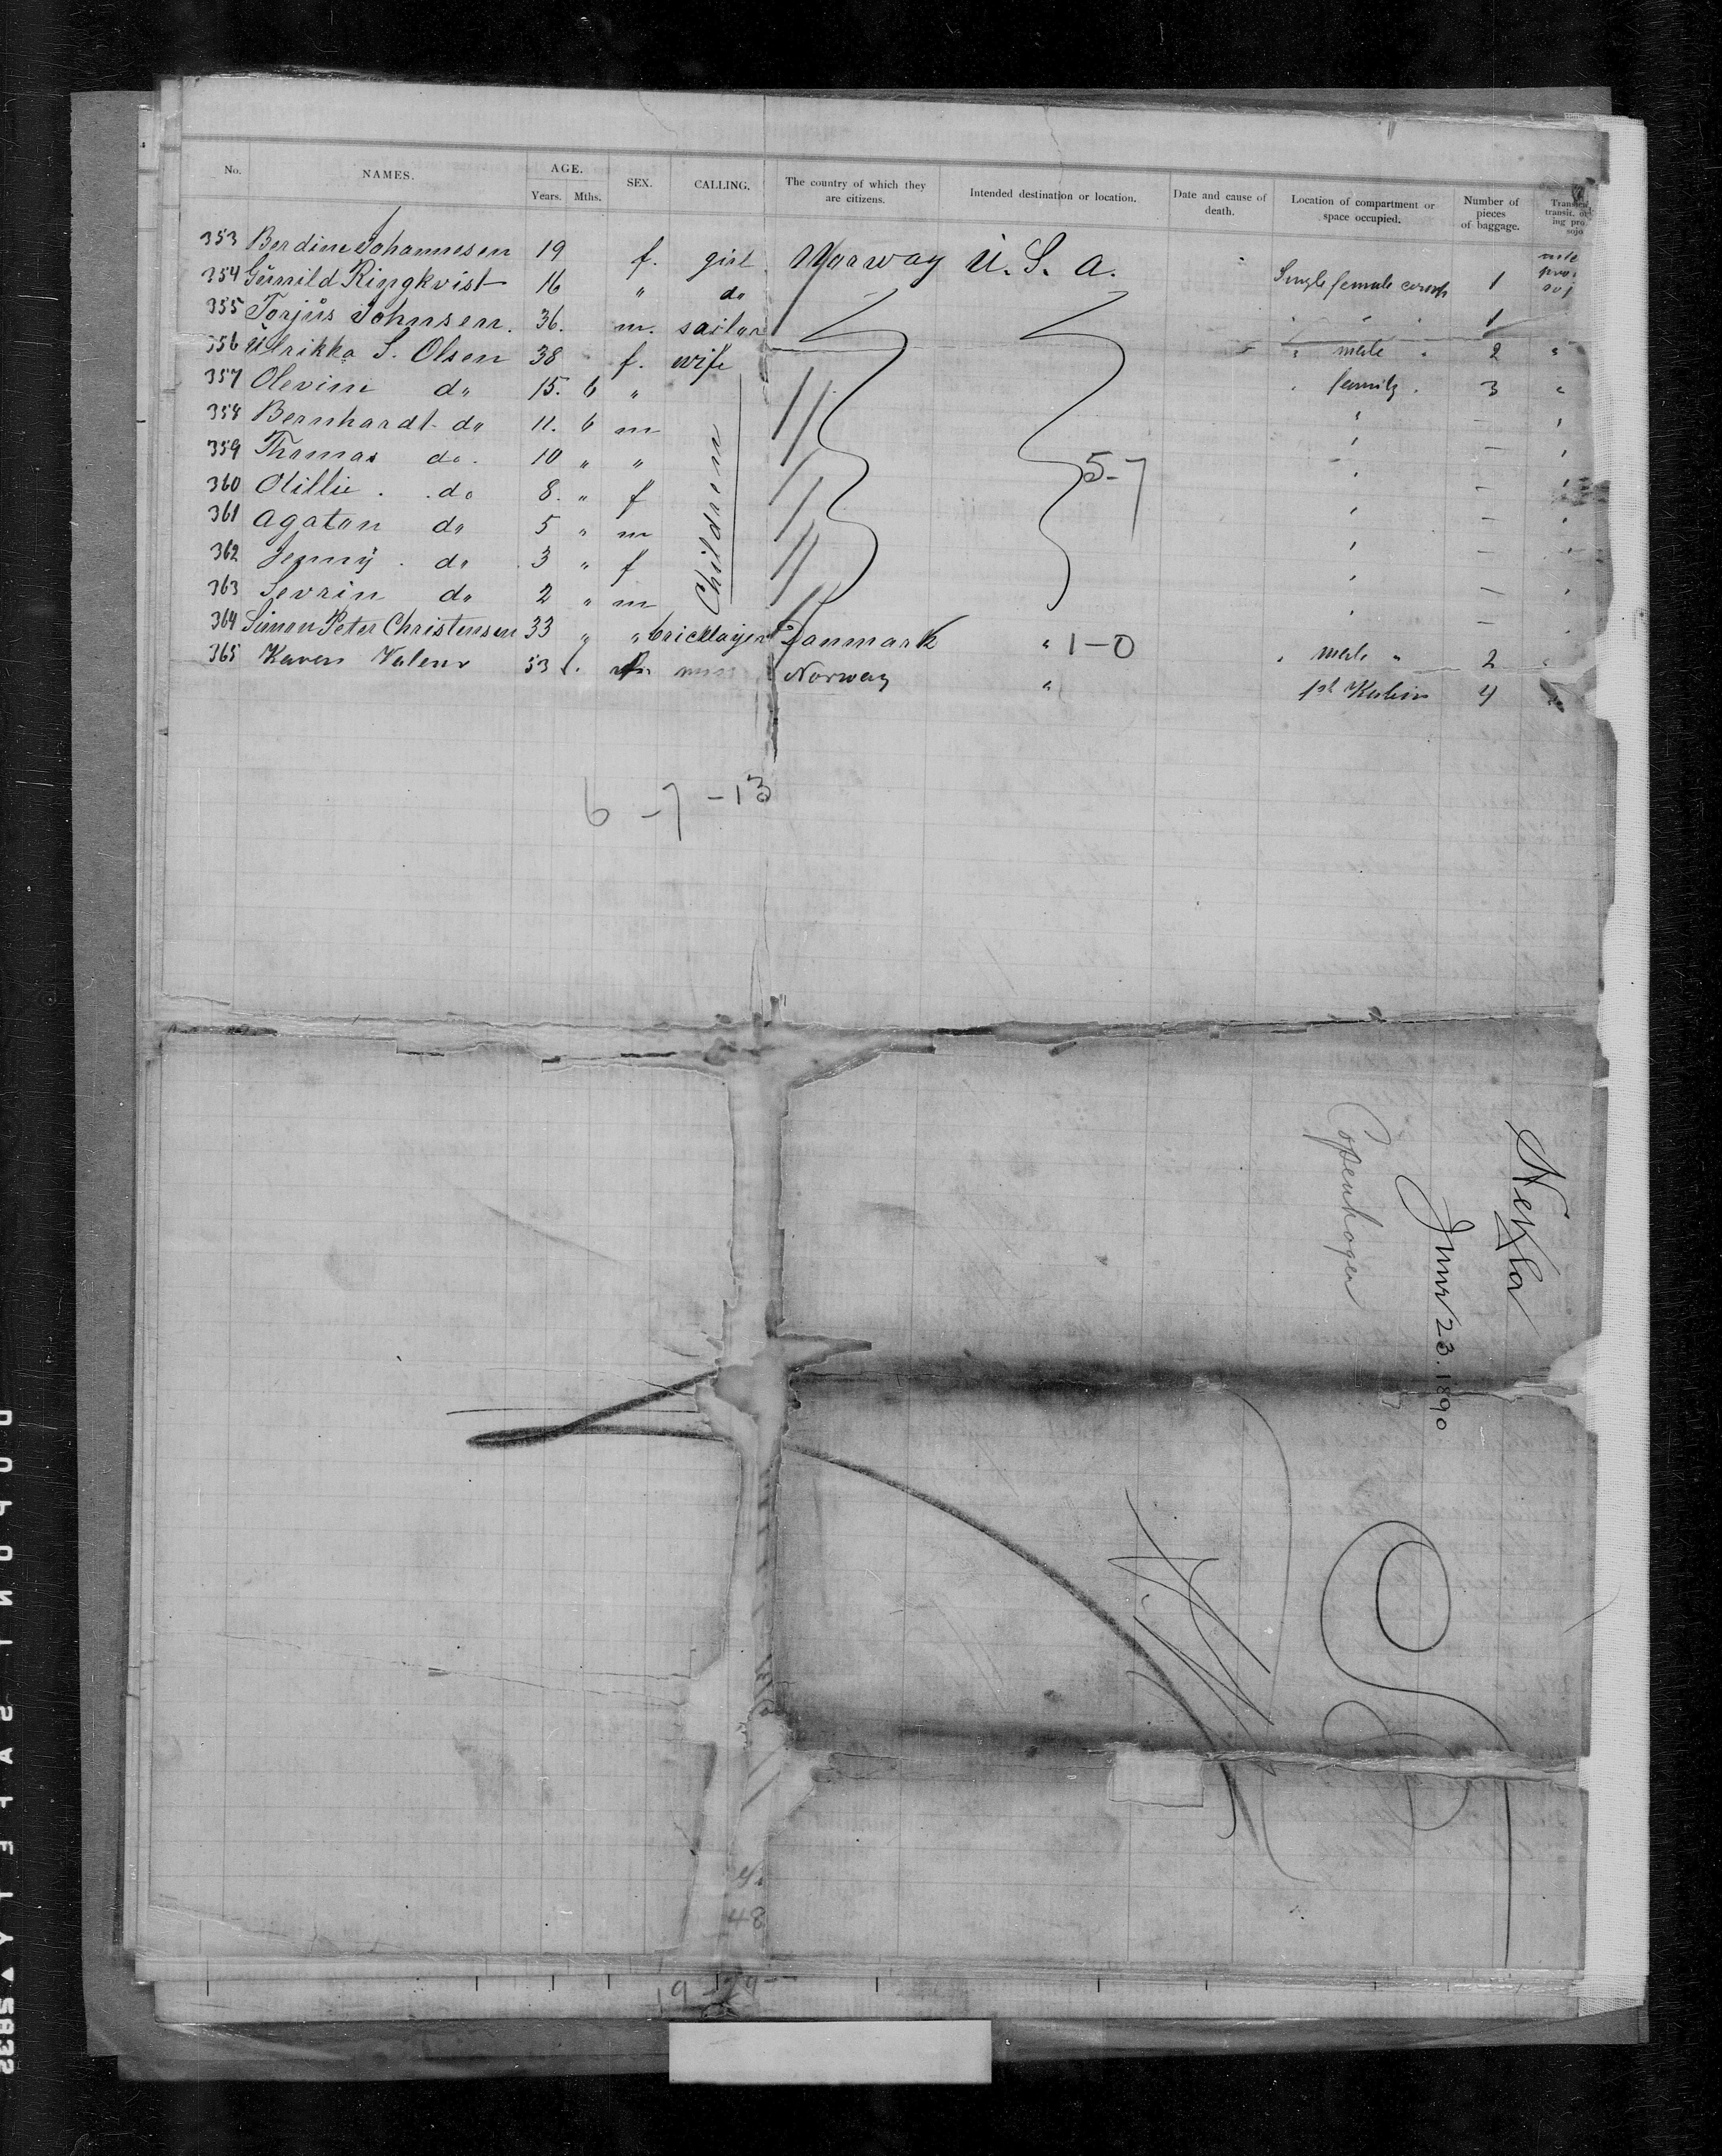 No. NAMES. AGE. Years. Mths. SEX. CALLING. The country of which they are citizens. Intended destination or location. Date and cause of death. Location of compartment or space occupied. Number of pieces of baggage.
353 Berdine Johannesen 19 f. girl Norway U. S. A. Single female comp 1
354 Gunild Ringkvist 16 " do 1
355 Torjus Johnsen. 36. m. sailor " male " 2 "
356 Ulrikka S. Olsen 38 f. wife family 3 "
357 Olevine do 15. 6 "
358 Bernhardt do 11. 6 m
359 Thomas do. 10 " "
360 Otillie . do 8. " f
361 Agaton do 5 " m
362 Jenny . do 3 " f
363 Sevrin do 2 " m
Children
5-7
364 Simon Peter Christensen 33 " " bricklayer Danmark " 1-0 male " 2
365 Karen 53 Norway " 1st Kabin 4
6 -7 -13
Hekla
June 23. 1890
Copenhagen
48
19 -29-